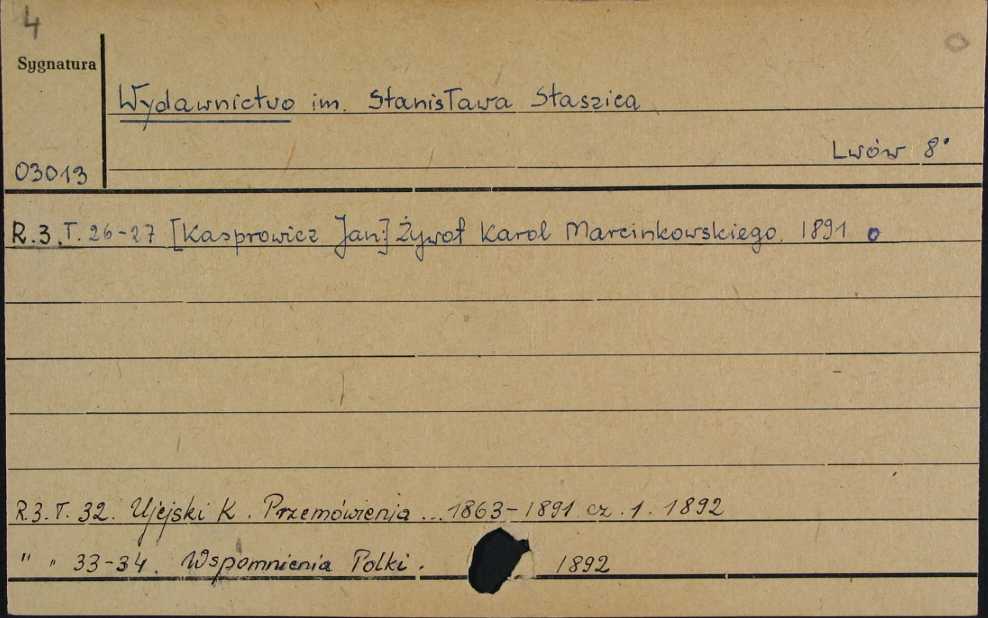 4
Sygnatura
Wydawnictwo im. Stanisława Staszica
Lwów 8°
03013
R.3. T. 26-27 [Kasprowicz Jan] Żywot Karol Marcinkowskiego. 1891
R.3. T. 32. Ujejski K. Przemówienia ... 1863-1891 cz. 1. 1892
" " 33-34. Wspomnienia Polki. 1892